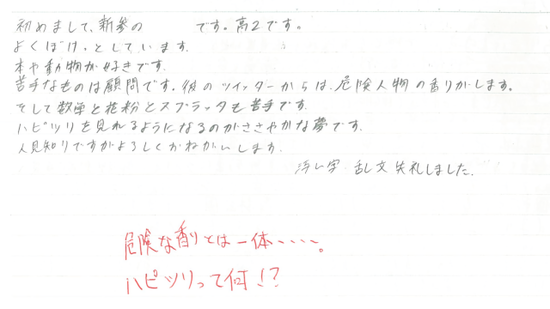 初めまして、新参の　　　です。高2です。
よくぼけーとしています。
本や動物が好きです。
苦手なものは顧問です。彼のツイッターからは、危険人物の香りがします。
そして数学と花粉とスプラッタも苦手です。
ハピツリを見れるようになるのがささやかな夢です。
人見知りですがよろしくおねがいします。
汚い字 乱文 失礼しました。
危険な香りとは一体・・・・。
ハピツリって何!?